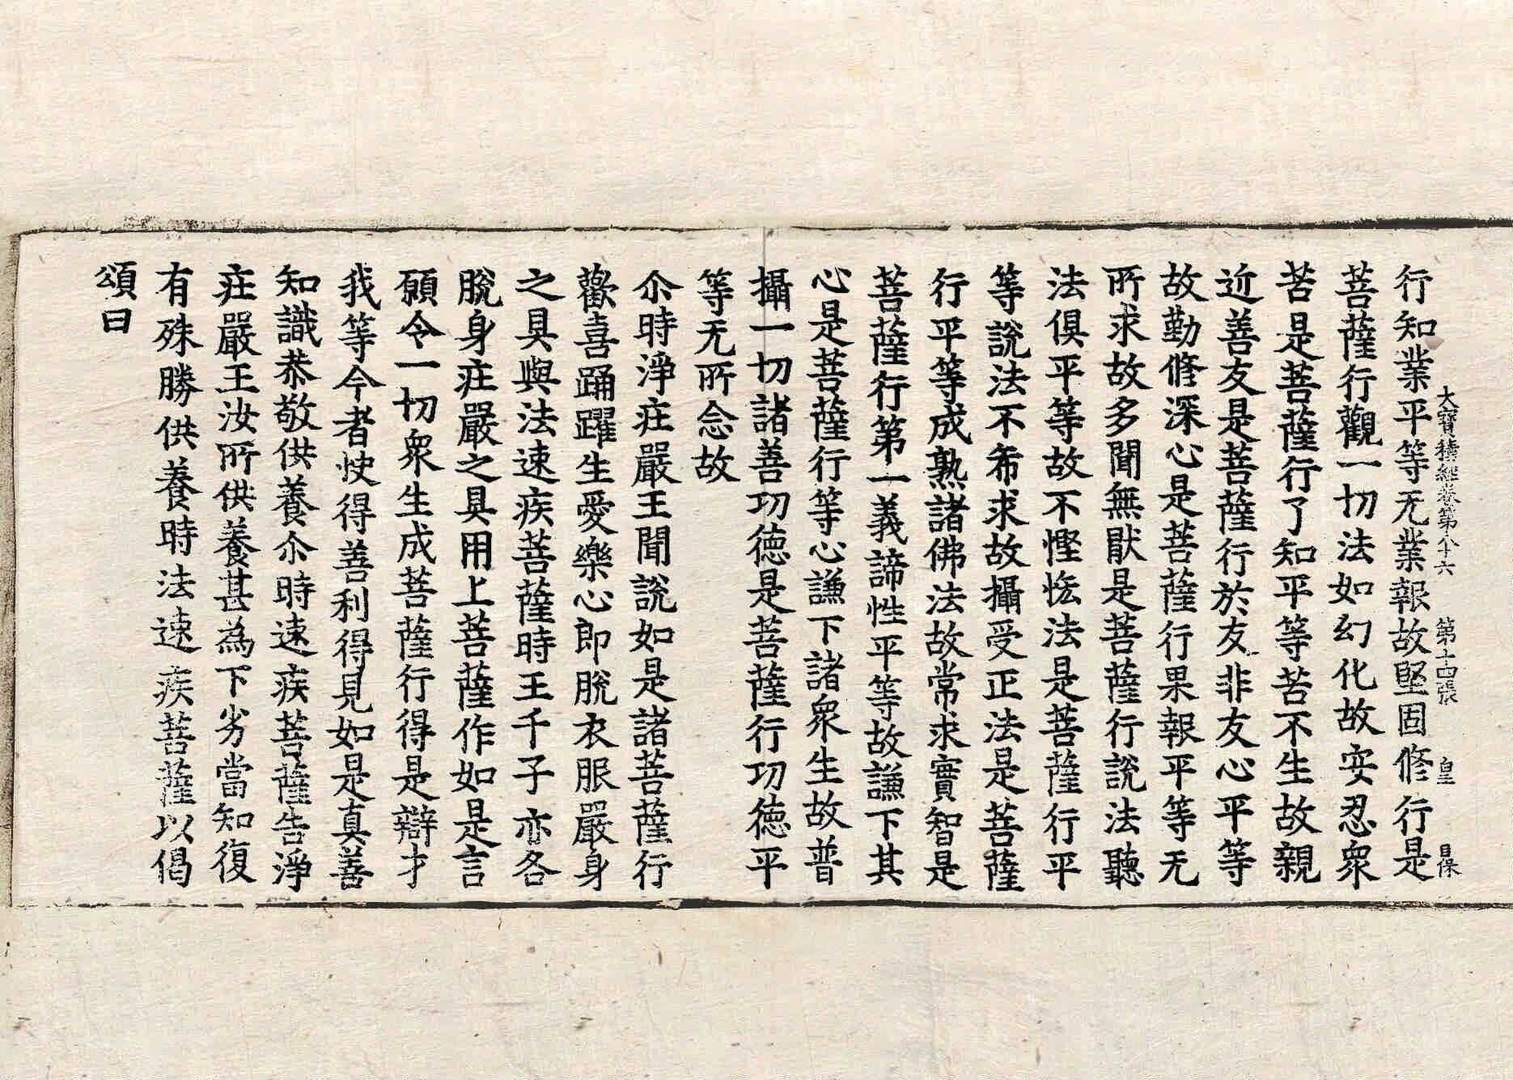 大寶積經卷第八十六 第十四張 皇 昌保
行知業平等无業報故堅固修行是
菩薩行觀一切法如幻化故安忍衆
苦是菩薩行了知平等苦不生故親
近善友是菩薩行於友非友心平等
故勤修深心是菩薩行果報平等无
所求故多聞無猒是菩薩行說法聽
法俱平等故不慳悋法是菩薩行平
等說法不希求故攝受正法是菩薩
行平等成熟諸佛法故常求實智是
菩薩行第一義諦性平等故謙下其
心是菩薩行等心謙下諸衆生故普
攝一切諸善功德是菩薩行功德平
等无所念故
尒時淨莊嚴王聞說如是諸菩薩行
歡喜踊躍生愛樂心即脫衣服嚴身
之具與法速疾菩薩時王千子亦各
脫身莊嚴之具用上菩薩作如是言
願令一切衆生成菩薩行得是辯才
我等今者快得善利得見如是真善
知識恭敬供養尒時速疾菩薩告淨
莊嚴王汝所供養甚為下劣當知復
有殊勝供養時法速疾菩薩以偈
頌曰